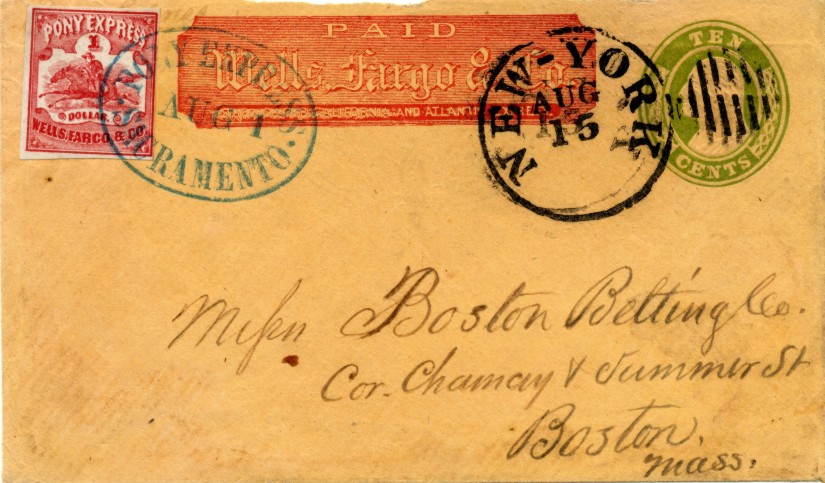 PONY EXPRESS
1
DOLLAR.
WELLS, FARGO & CO.
PONY EXPRESS.
AUG 1
SACRAMENTO.
PAID
Wells, Fargo & Co.
CALIFORNIA AND ATLANTIC
NEW-YORK
AUG
15
TEN
CENTS
Messrs Boston Belting Co.
Cor. Chamay & Summer St
Boston,
Mass.